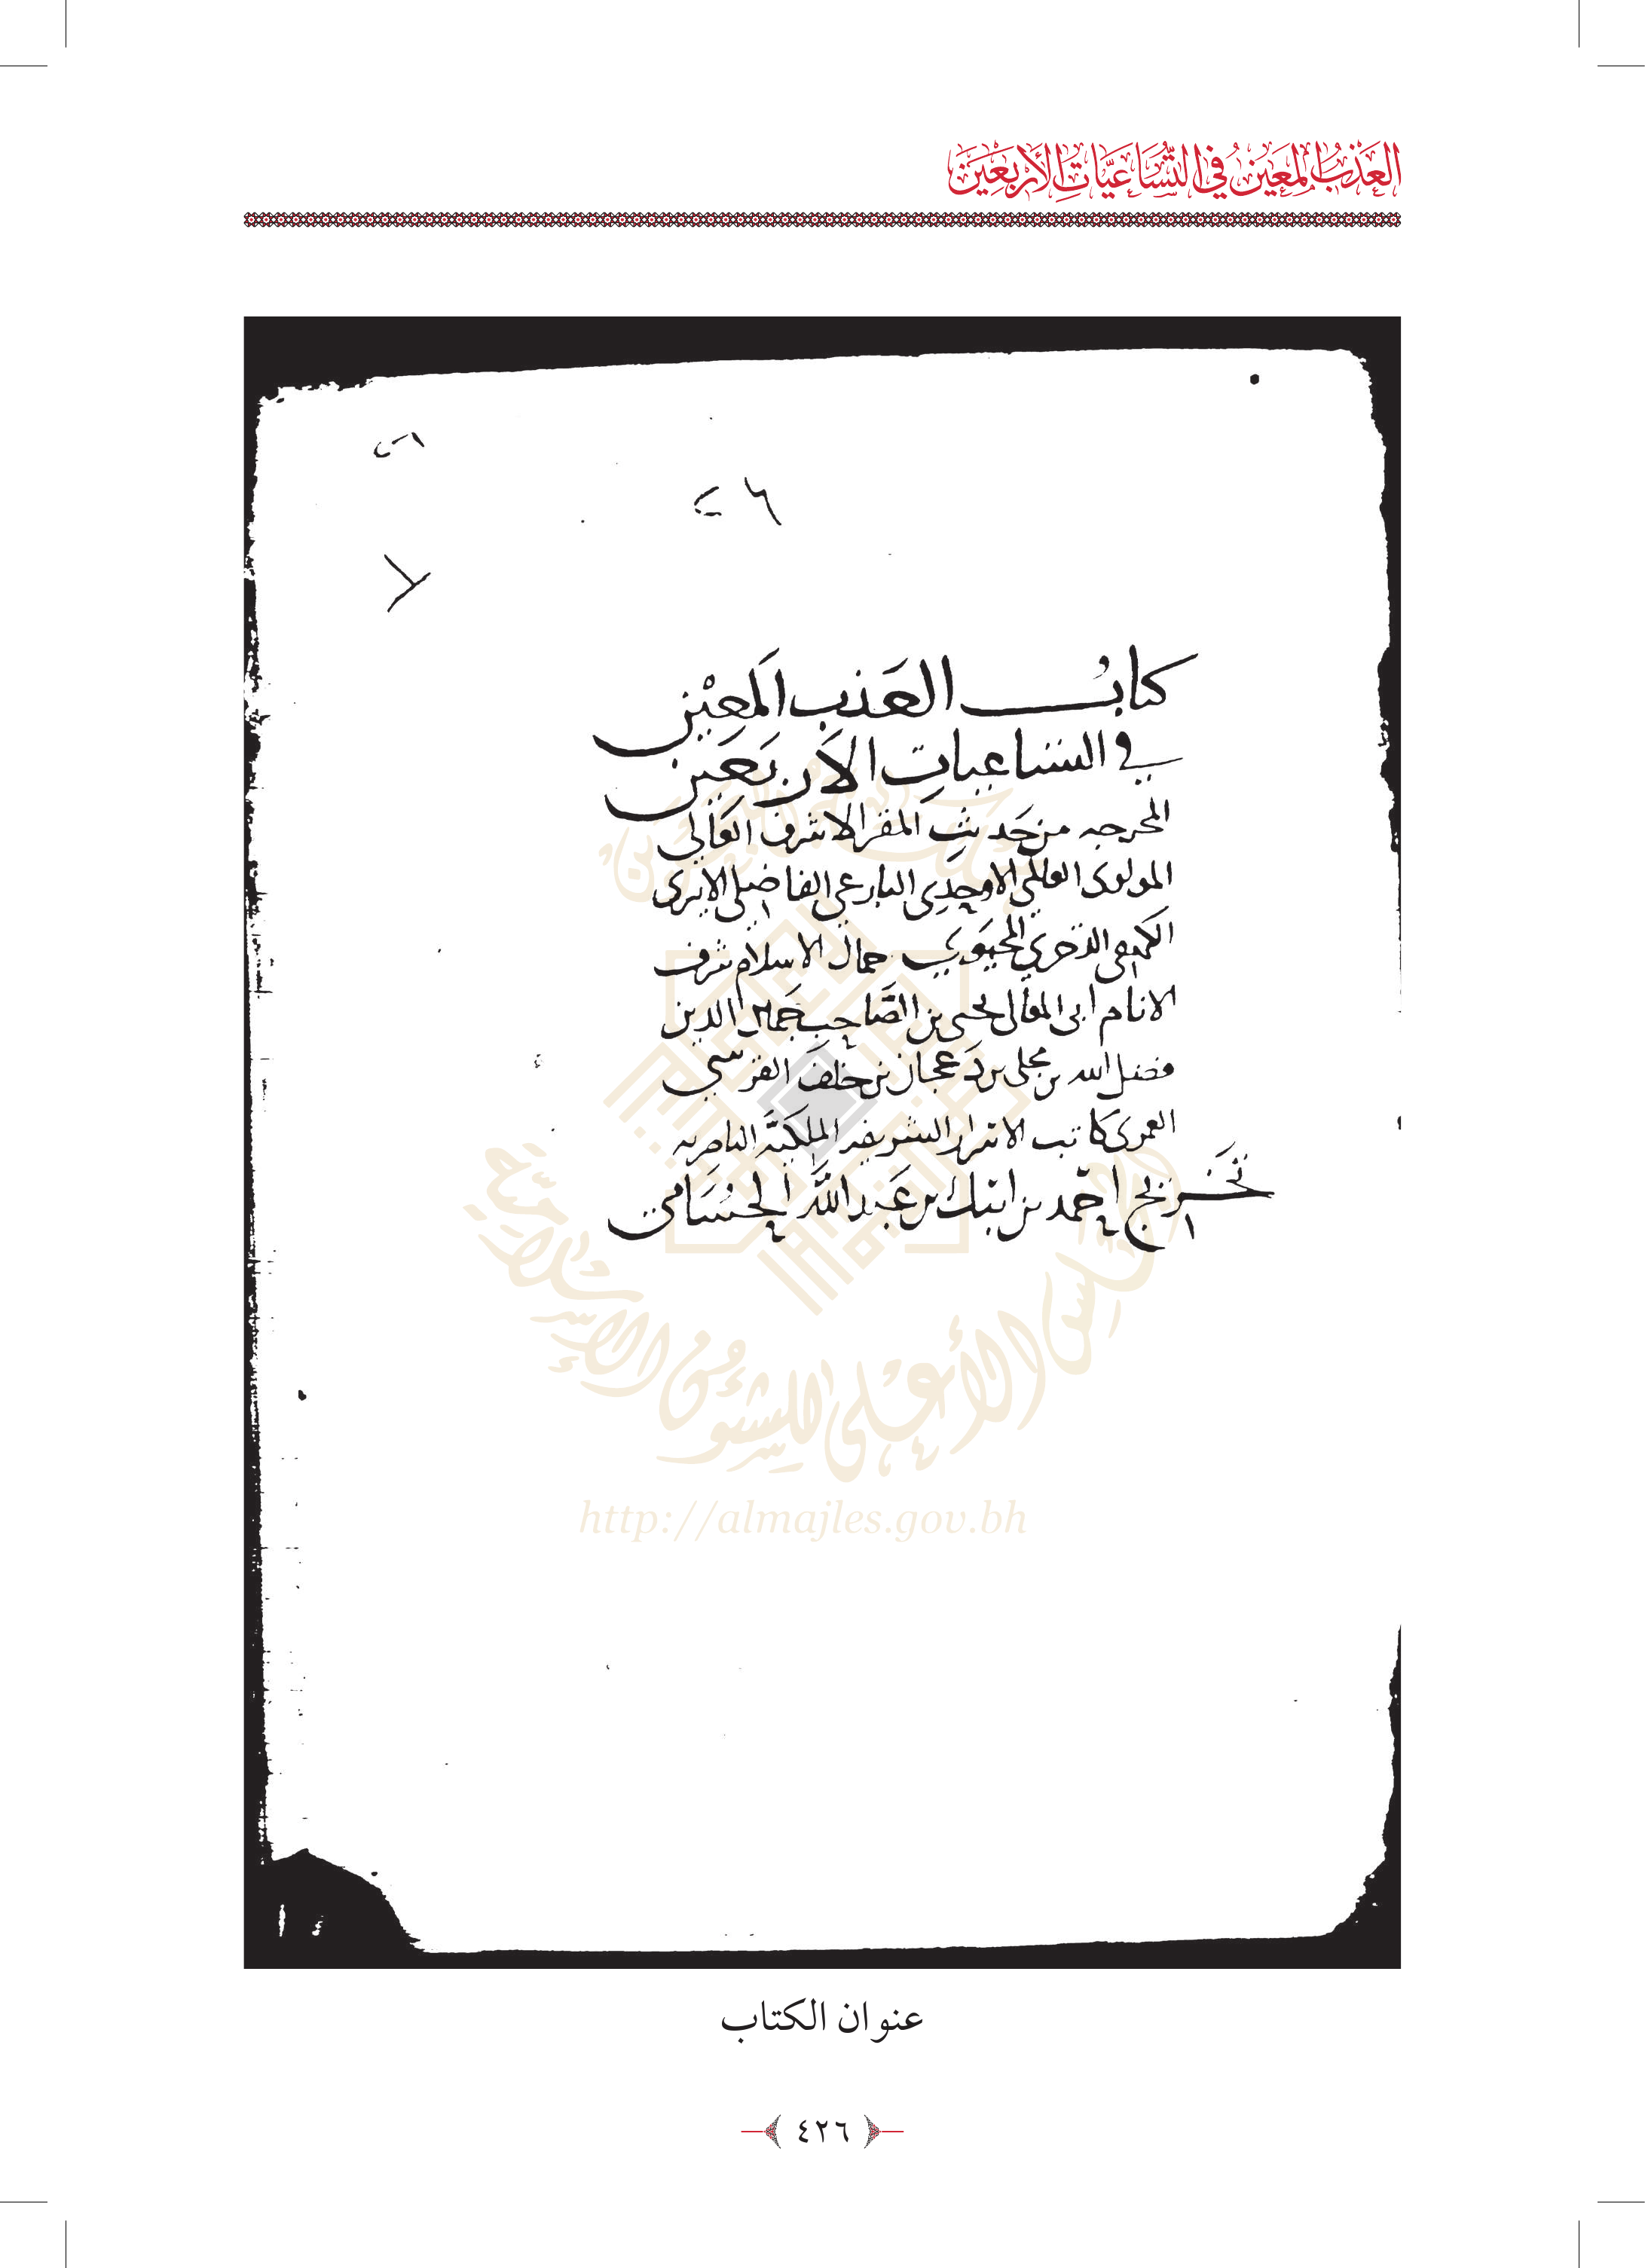 العَذْبُ المَعِينُ فِي التُّسَاعِيَّاتِ الأَرْبَعِينَ
كتابُ العَذب المَعِيْن
في التساعيات الاَربَعين
المخرجه من حَديثِ المقر الاشرف العَالي
المولوى العالمي الاوحدِي البارعي الفاضلي الاثيرى
الكهفى الذخري المحيَوي جمال الاسلام شرف
الانام ابى المعَالى يحيى بن الصَّاحب جَمال الدين
فضل الله بن مجلى بن دَعجان بن خلفَ القرشي
العمرى كاتب الاسرار الشريفه الملكيَّه الناصريه
تخَريج احمد بن ايبك بن عَبد اللَّه الحُسَامي
المجلس الأعلى للشؤون الإسلامية
http://almajles.gov.bh
عنوان الكتاب
٤٢٦